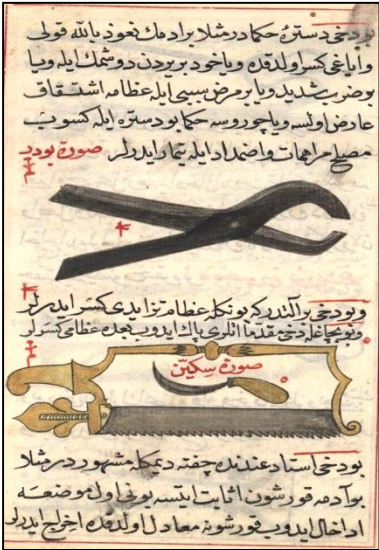 بو دخی دسترۀ حكما در مثلا بر آدمك نعوذ بالله قولی
وایاغی كسر اولدقده ویاخود بر یردن دوشمك ایله ویا
بو ضرب شدید ویا بر مرض سببی ایله عظامه اشتقاق
عارض اولسه ویا چوروسه حكما بو دستره ایله كسوب
مصلح مراهمات واضمداد ایله تیمار ایدرلر صورة بودر
وبو دخی بر آلتدر كه بونكله عظام تزایدی كسر ایدرلر
وبو بچاغله دخی مقدما اتلری پاك ایدوب بعده عظامی كسرلر
صورة سكین
بو دخی استاد عندنده چفته دیمكله مشهور در مثلا
بو آدمه قورشون اثابت ایتسه بونی اول موضعه
ادخال ایدوب قورشونه معادل اولدقده اخراج ایدرلر